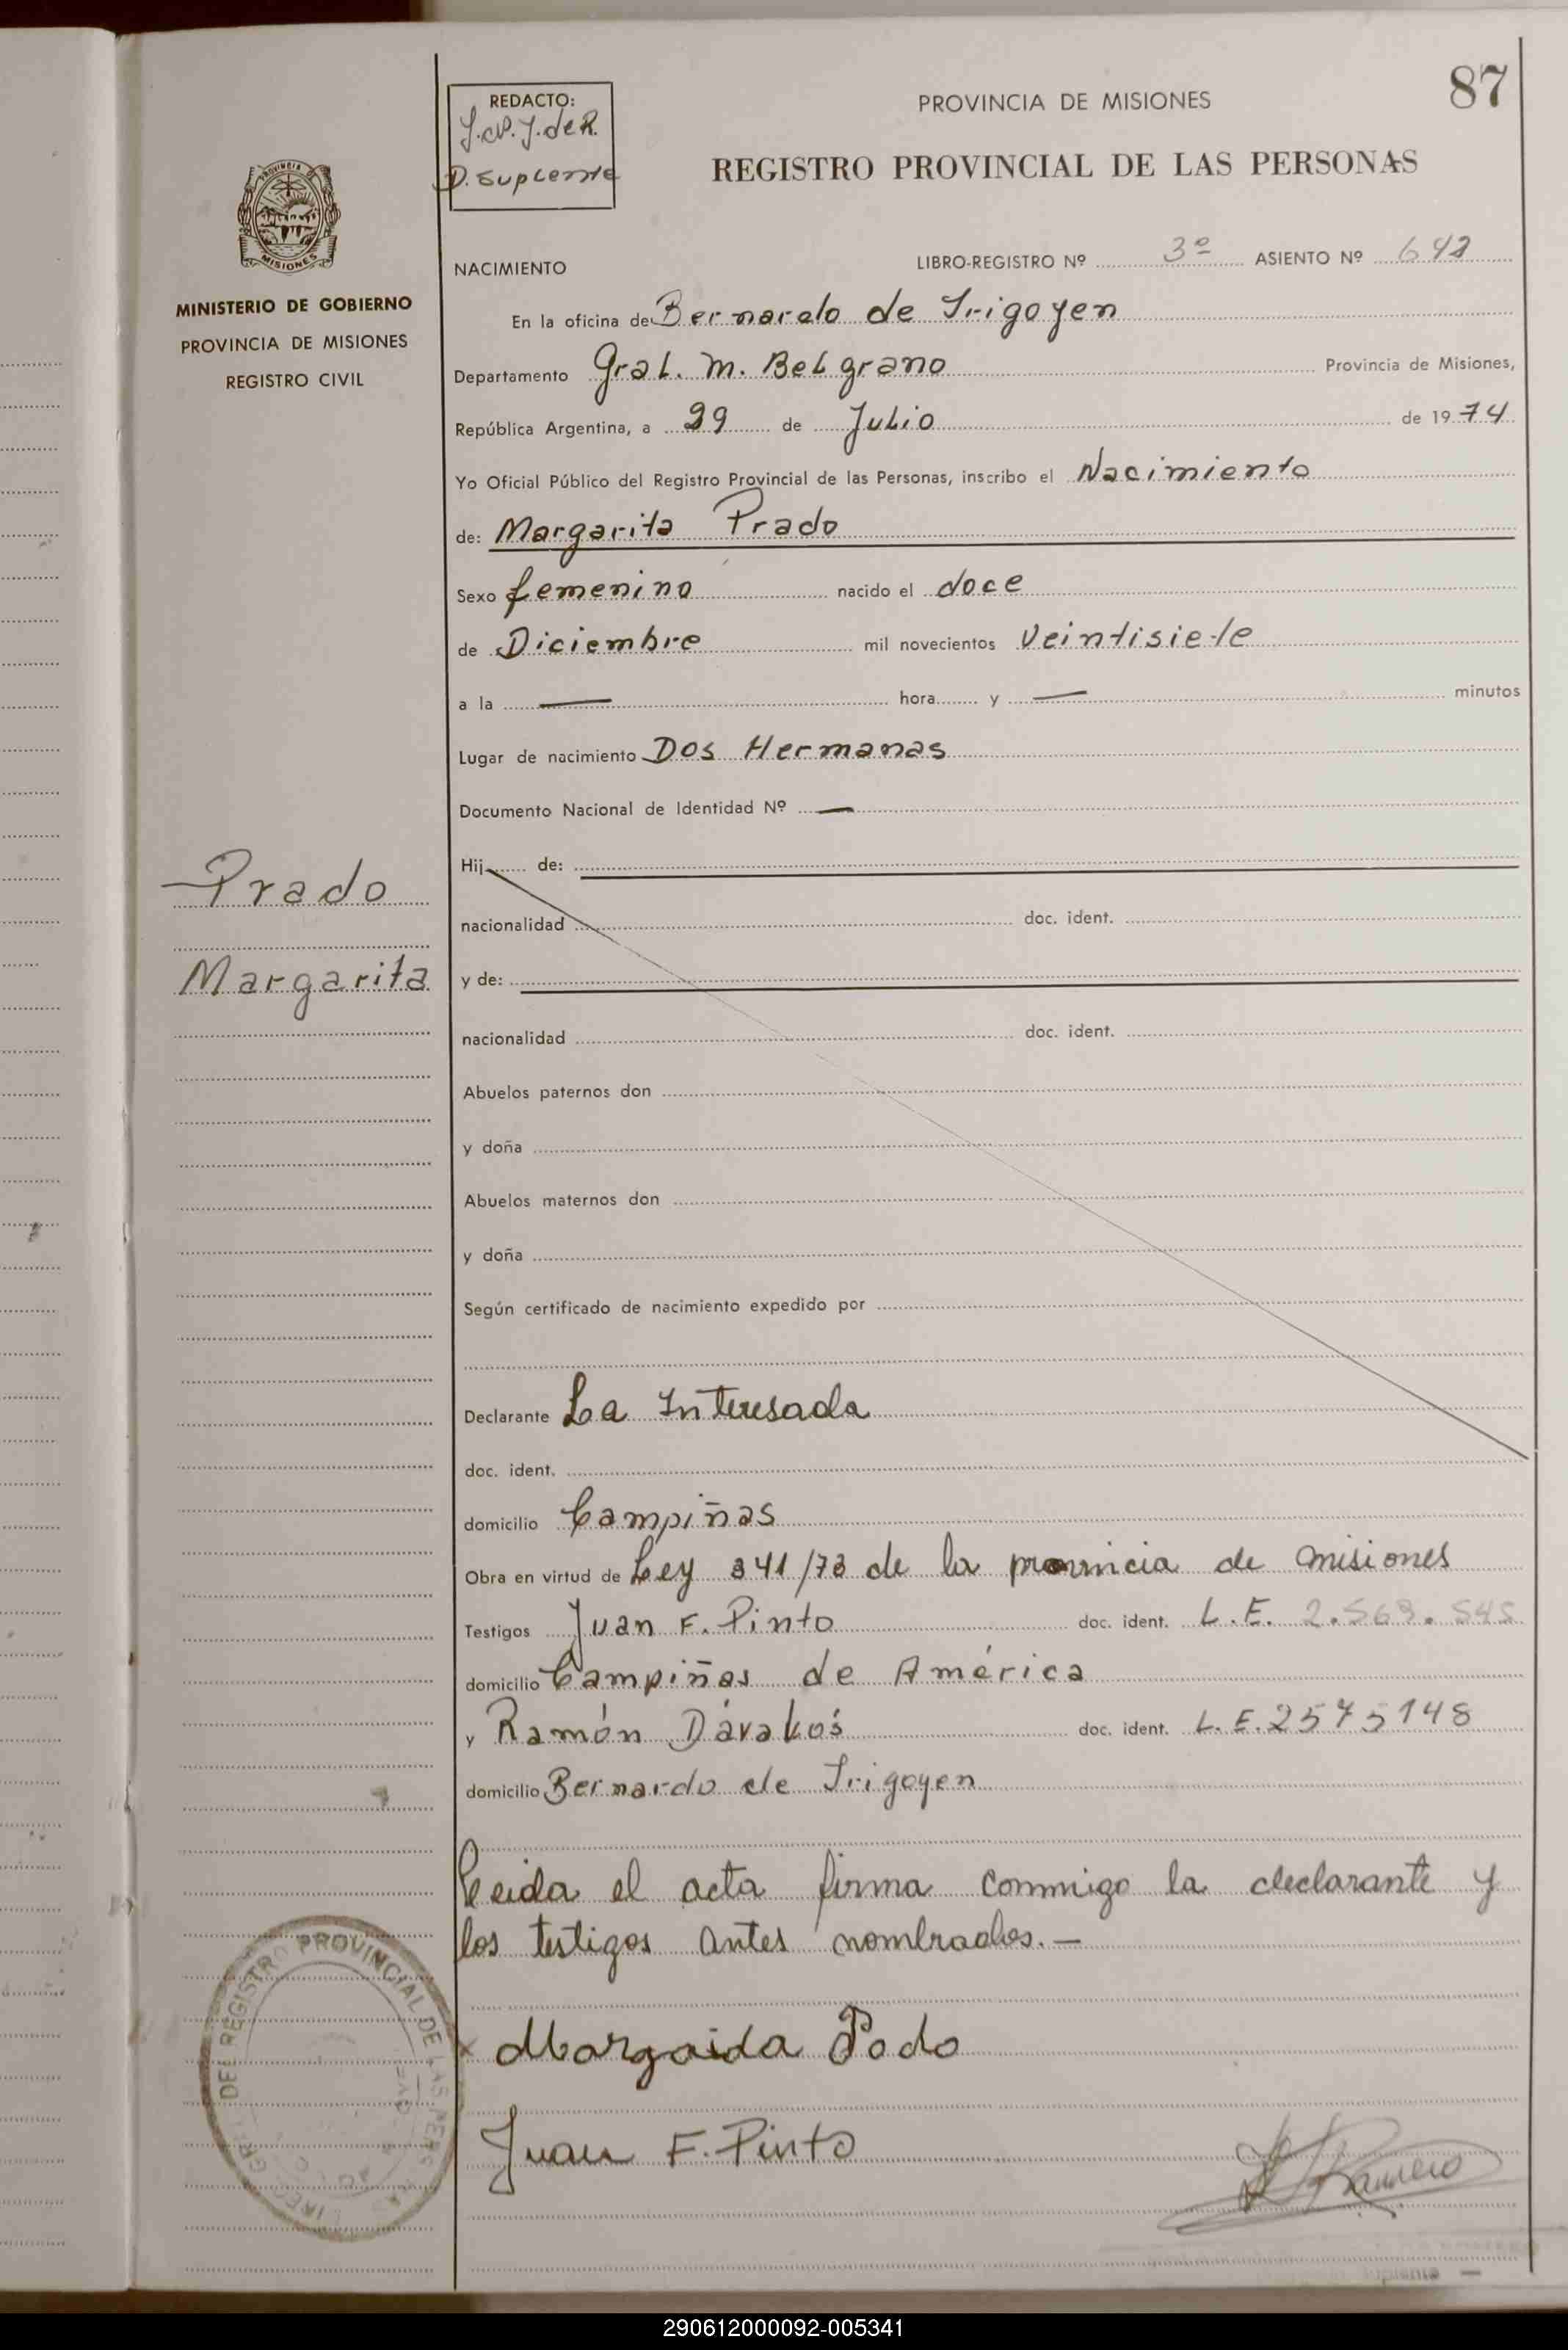 87
REDACTO:
D. Suplente
PROVINCIA DE MISIONES
REGISTRO PROVINCIAL DE LAS PERSONAS
PROVINCIA DE
MISIONES
MINISTERIO DE GOBIERNO
PROVINCIA DE MISIONES
REGISTRO CIVIL
NACIMIENTO LIBRO-REGISTRO Nº 3º ASIENTO Nº 642
En la oficina de Bernardo de Irigoyen
Departamento Gral. M. Belgrano Provincia de Misiones,
República Argentina, a 29 de Julio de 1974
Yo Oficial Público del Registro Provincial de las Personas, inscribo el Nacimiento
de: Margarita Prado
Sexo femenino nacido el doce
de Diciembre mil novecientos veintisiete
a la — hora y — minutos
Lugar de nacimiento Dos Hermanas
Documento Nacional de Identidad Nº —
Hij de:
nacionalidad doc. ident.
y de:
nacionalidad doc. ident.
Abuelos paternos don
y doña
Abuelos maternos don
y doña
Según certificado de nacimiento expedido por
Prado
Margarita
Declarante La Interesada
doc. ident.
domicilio Campiñas
Obra en virtud de Ley 341/73 de la provincia de misiones
Testigos Juan F. Pinto doc. ident. L.E. 2.563.545
domicilio Campiñas de América
y Ramón Dávalos doc. ident. L.E. 2575148
domicilio Bernardo de Irigoyen
Leida el acta firma conmigo la declarante y
los testigos antes nombrados.—
x Margaida Pado
Juan F. Pinto
DEL REGISTRO PROVINCIAL DE LAS PERS
290612000092-005341